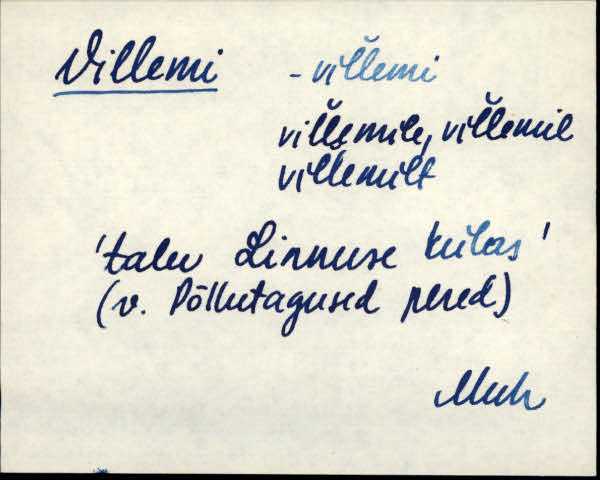 Villemi - vil̆l̆emi
vil̆l̆emile, vil̆l̆emil
vil̆l̆emilt
'talu Linnuse külas'
(v. Põllutagused pered)
Muh